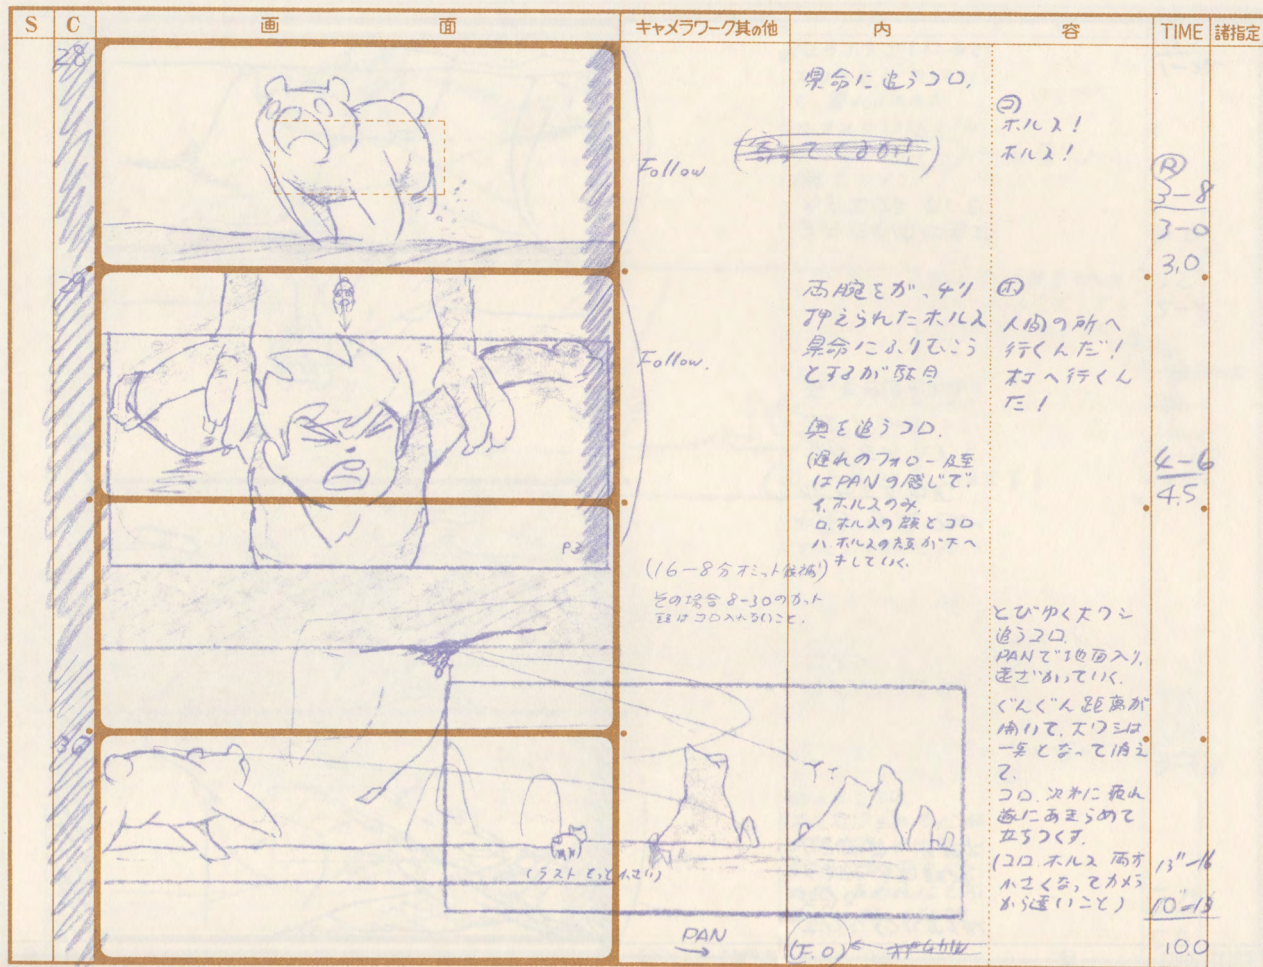 S C 画面 キャメラワーク其の他 内容 TIME 諸指定
28
県命に追うコロ.
Follow
コ
ホルス!
ホルス!
R
3-8
3-0
3.0
29
Follow.
両腕をが、チリ
押えられたホルス
県命にふりむこう
とするが駄目
奥を追うコロ.
(遅れのフォロー乃至
はPANの感じで.
イ.ホルスのみ.
ロ.ホルスの顔とコロ
ハ.ホルスの顔が下へ
ホ
人間の所へ
行くんだ!
村へ行くん
だ!
4-6
4.5
P3
(16-8分オミット候補)
その場合 8-30のカット
30
とびゆく大ワシ
追うコロ.
PANで地面入り.
遠ざかっていく.
ぐんぐん距離が
開いて.大ワシは
一点となって消え
て.
コロ.次第に疲れ
遂にあきらめて
立ちつくす.
(コロ.ホルス 両方
小さくなってカメラ
から遠いこと)
13"-16
10"-13
10.0
PAN
(F.O)